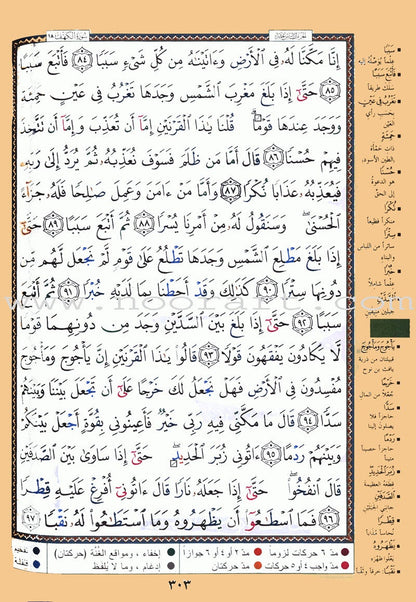 سُورَةُ الكَهْفِ ١٨
إِنَّا مَكَّنَّا لَهُۥ فِي ٱلْأَرْضِ وَءَاتَيْنَٰهُ مِن كُلِّ شَىْءٍ سَبَبًا ﴿٨٤﴾ فَأَتْبَعَ سَبَبًا
﴿٨٥﴾ حَتَّىٰٓ إِذَا بَلَغَ مَغْرِبَ ٱلشَّمْسِ وَجَدَهَا تَغْرُبُ فِي عَيْنٍ حَمِئَةٍ
وَوَجَدَ عِندَهَا قَوْمًا ۗ قُلْنَا يَٰذَا ٱلْقَرْنَيْنِ إِمَّآ أَن تُعَذِّبَ وَإِمَّآ أَن تَتَّخِذَ
فِيهِمْ حُسْنًا ﴿٨٦﴾ قَالَ أَمَّا مَن ظَلَمَ فَسَوْفَ نُعَذِّبُهُۥ ثُمَّ يُرَدُّ إِلَىٰ رَبِّهِۦ
فَيُعَذِّبُهُۥ عَذَابًا نُّكْرًا ﴿٨٧﴾ وَأَمَّا مَنْ ءَامَنَ وَعَمِلَ صَٰلِحًا فَلَهُۥ جَزَآءً
ٱلْحُسْنَىٰ ۖ وَسَنَقُولُ لَهُۥ مِنْ أَمْرِنَا يُسْرًا ﴿٨٨﴾ ثُمَّ أَتْبَعَ سَبَبًا ﴿٨٩﴾ حَتَّىٰٓ
إِذَا بَلَغَ مَطْلِعَ ٱلشَّمْسِ وَجَدَهَا تَطْلُعُ عَلَىٰ قَوْمٍ لَّمْ نَجْعَل لَّهُم مِّن
دُونِهَا سِتْرًا ﴿٩٠﴾ كَذَٰلِكَ وَقَدْ أَحَطْنَا بِمَا لَدَيْهِ خُبْرًا ﴿٩١﴾ ثُمَّ أَتْبَعَ
سَبَبًا ﴿٩٢﴾ حَتَّىٰٓ إِذَا بَلَغَ بَيْنَ ٱلسَّدَّيْنِ وَجَدَ مِن دُونِهِمَا قَوْمًا
لَّا يَكَادُونَ يَفْقَهُونَ قَوْلًا ﴿٩٣﴾ قَالُوا۟ يَٰذَا ٱلْقَرْنَيْنِ إِنَّ يَأْجُوجَ وَمَأْجُوجَ
مُفْسِدُونَ فِي ٱلْأَرْضِ فَهَلْ نَجْعَلُ لَكَ خَرْجًا عَلَىٰٓ أَن تَجْعَلَ بَيْنَنَا وَبَيْنَهُمْ
سَدًّا ﴿٩٤﴾ قَالَ مَا مَكَّنِّي فِيهِ رَبِّي خَيْرٌ فَأَعِينُونِي بِقُوَّةٍ أَجْعَلْ بَيْنَكُمْ
وَبَيْنَهُمْ رَدْمًا ﴿٩٥﴾ ءَاتُونِي زُبَرَ ٱلْحَدِيدِ ۖ حَتَّىٰٓ إِذَا سَاوَىٰ بَيْنَ ٱلصَّدَفَيْنِ
قَالَ ٱنفُخُوا۟ ۖ حَتَّىٰٓ إِذَا جَعَلَهُۥ نَارًا قَالَ ءَاتُونِيٓ أُفْرِغْ عَلَيْهِ قِطْرًا
﴿٩٦﴾ فَمَا ٱسْطَٰعُوٓا۟ أَن يَظْهَرُوهُ وَمَا ٱسْتَطَٰعُوا۟ لَهُۥ نَقْبًا ﴿٩٧﴾
www.noorart.com
سَبَبًا
فَأَتْبَعَ سَبَبًا
سلك طريقاً
تَغْرُبُ فِي عَيْنٍ
بحسب رأي
العين
حَمِئَةٍ
حُسْنًا
نُكْرًا
منكراً فظيعاً
سِتْرًا
ساتراً من اللباس
والبناء
خُبْرًا
علماً شاملاً
السَّدَّيْنِ
جبلين منيفين
يَأْجُوجَ وَمَأْجُوجَ
قبيلتان من ذرية
يافث بن نوح
خَرْجًا
جُعلاً من المال
سَدًّا
حاجزاً فلا
يصلون إلينا
رَدْمًا
حاجزاً حصيناً
متيناً
زُبَرَ الْحَدِيدِ
قطعه العظيمة
الصَّدَفَيْنِ
جانبي الجبلين
قِطْرًا
نحاساً مذاباً
يَظْهَرُوهُ
يعلوا ظهره
نَقْبًا
مدّ ٦ حركات لزوماً مدّ ٢ أو ٤ أو ٦ جوازاً إخفاء، ومواقع الغُنَّة (حركتان) تفخيم
مدّ واجب ٤ أو ٥ حركات مدّ حركتان إدغام، وما لا يُلفظ قلقلة
٣٠٣